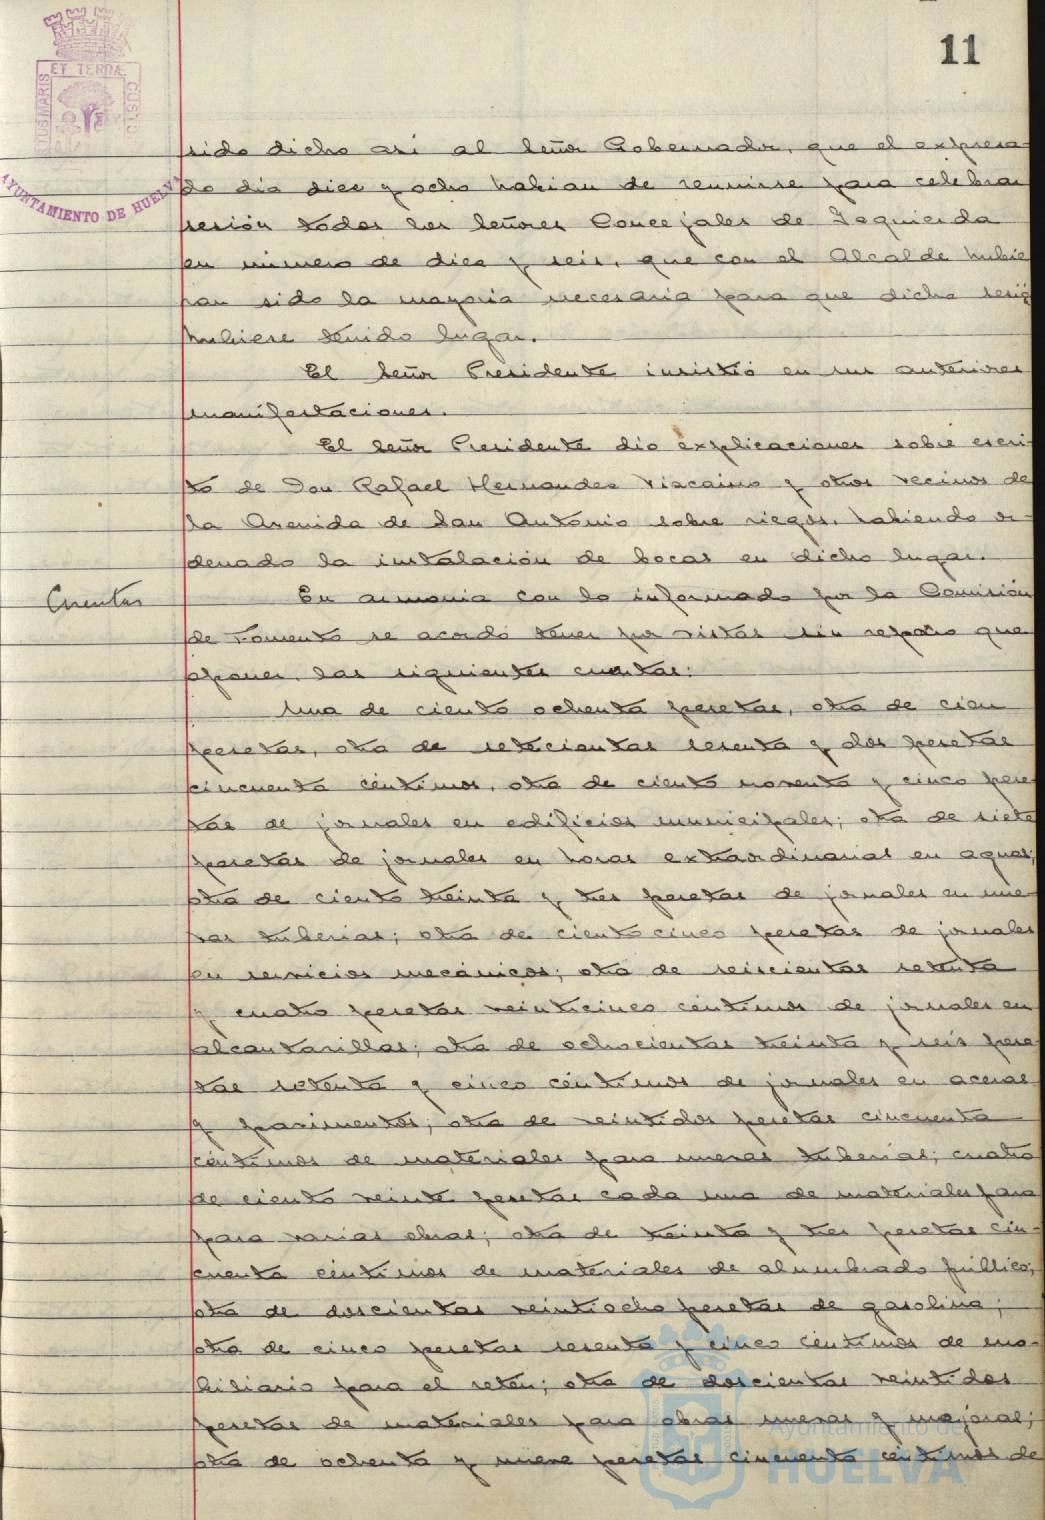 11
ET TERRÆ
AYUNTAMIENTO DE HUELVA
sido dicho así al Señor Gobernador, que el expresa-
do día diez y ocho habian de reunirse para celebrar
sesión todos los Señores Concejales de Izquierda
en número de diez y seis, que con el Alcalde hubie
ran sido la mayoria necesaria para que dicha sesió
hubiese tenido lugar.
El Señor Presidente insistió en sus anteriores
manifestaciones.
El Señor Presidente dio explicaciones sobre escri-
to de Don Rafael Hernandez Viscaino y otros vecinos de
la Avenida de San Antonio sobre riegos, habiendo or-
denado la instalación de bocas en dicho lugar.
Cuentas
En armonia con lo informado por la Comisión
de Fomento se acordó tener por vistas sin reparo que
oponer, las siguientes cuentas:
Una de ciento ochenta pesetas, otra de cien
pesetas, otra de setecientas sesenta y dos pesetas
cincuenta céntimos, otra de ciento noventa y cinco pese
tas de jornales en edificios municipales; otra de siete
pesetas de jornales en horas extraordinarias en aguas;
otra de ciento treinta y tres pesetas de jornales en nue
vas tuberias; otra de ciento cinco pesetas de jornales
en servicios mecánicos; otra de seiscientas setenta
y cuatro pesetas veinticinco céntimos de jornales en
alcantarillas; otra de ochocientas treinta y seis pese
tas setenta y cinco céntimos de jornales en aceras
y pavimentos; otra de veintidos pesetas cincuenta
céntimos de materiales para nuevas tuberias; cuatro
de ciento veinte pesetas cada una de materiales para
para varias obras; otra de treinta y tres pesetas cin-
cuenta céntimos de materiales de alumbrado público;
otra de doscientas veintiocho pesetas de gasolina;
otra de cinco pesetas sesenta y cinco céntimos de mo-
biliario para el retén; otra de doscientas veintidos
pesetas de materiales para obras nuevas y mejoras;
otra de ochenta y nueve pesetas cincuenta céntimos de
Ayuntamiento de
HUELVA